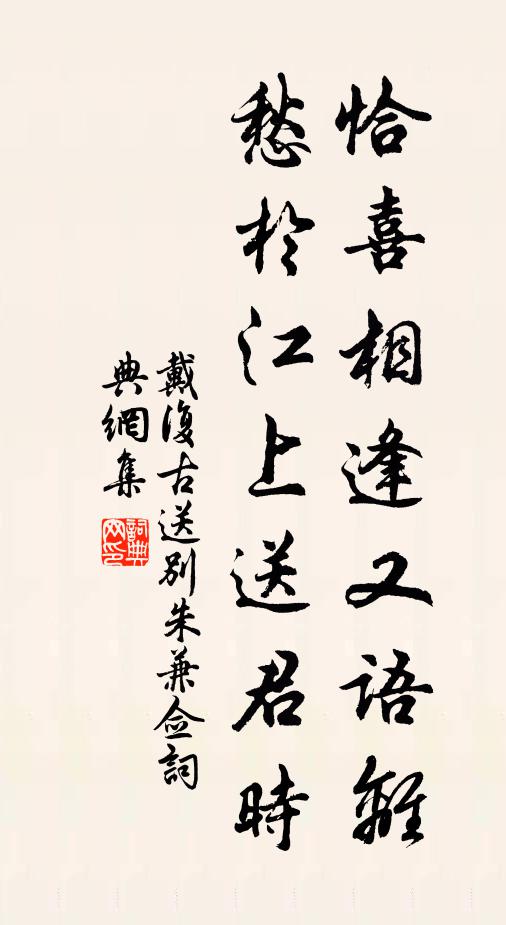 恰喜相逢又語離
愁於江上送君時
戴復古送別朱兼僉詞
典網集
詞典網印